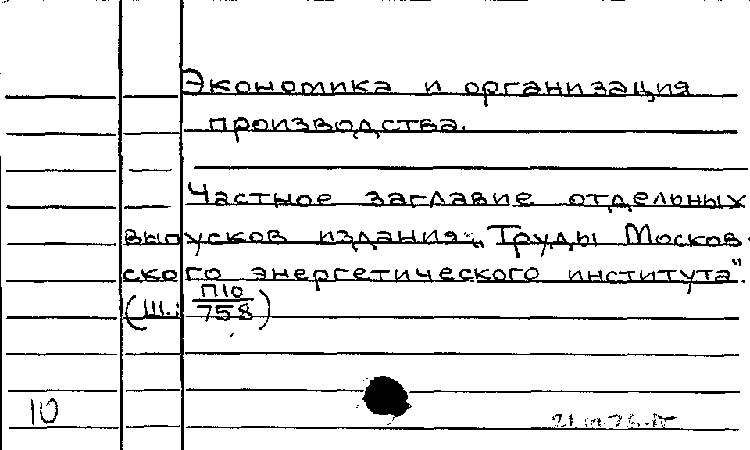 Экономика и организация
производства.
Частное заглавие отдельных
выпусков издания: „Труды Москов-
ского энергетического института".
(Ш.: П10/758)
10